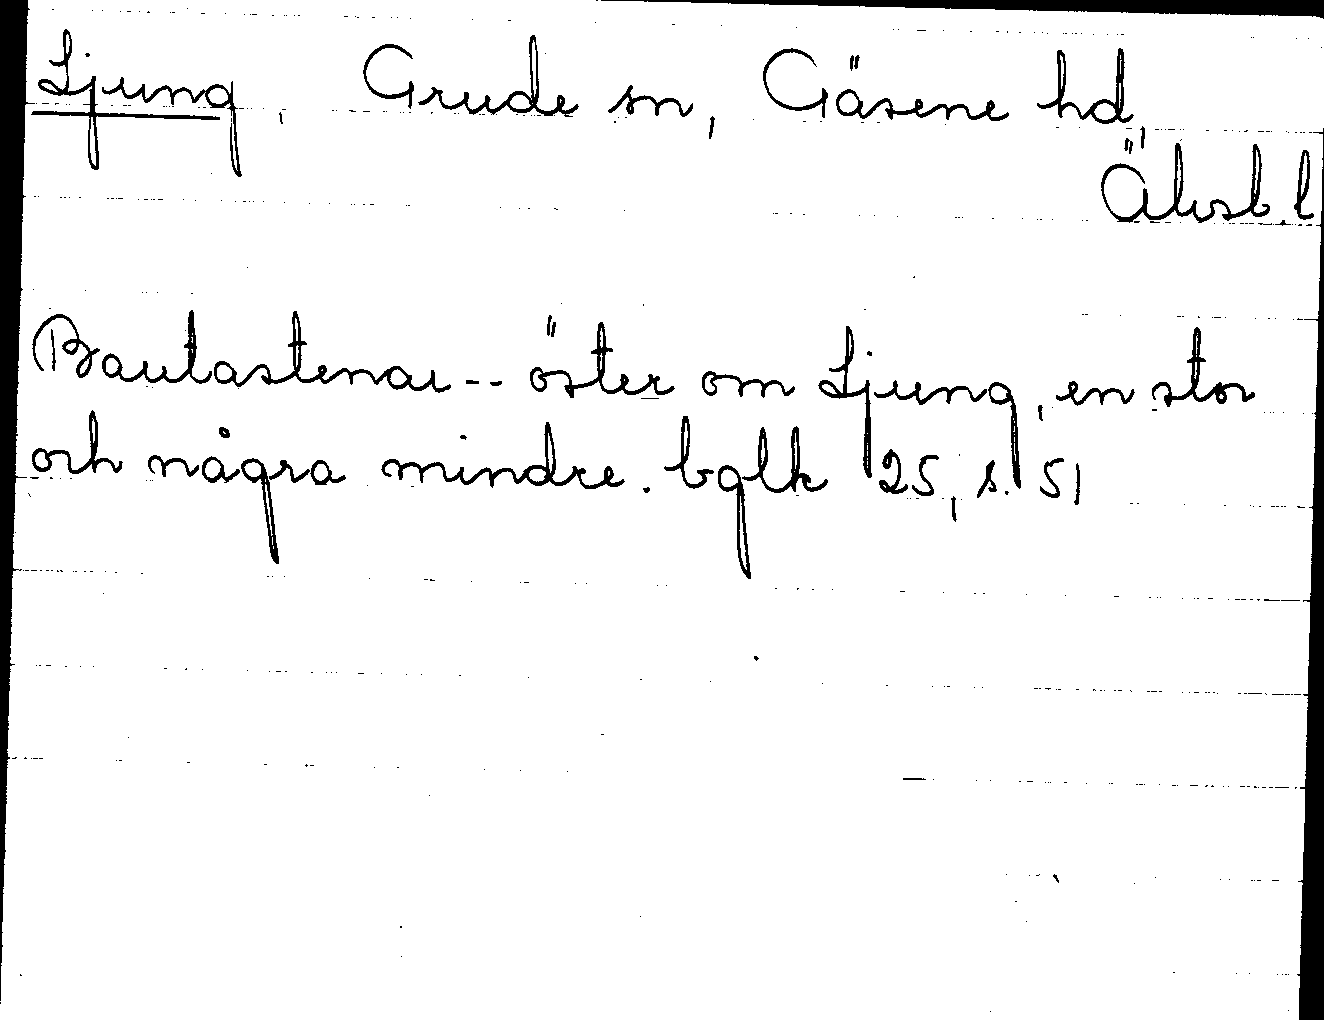 Ljung, Grude sn, Gäsene hd,
Älvsb. l
Bautastenar -- öster om Ljung, en stor
och några mindre. bglk 25, s. 51